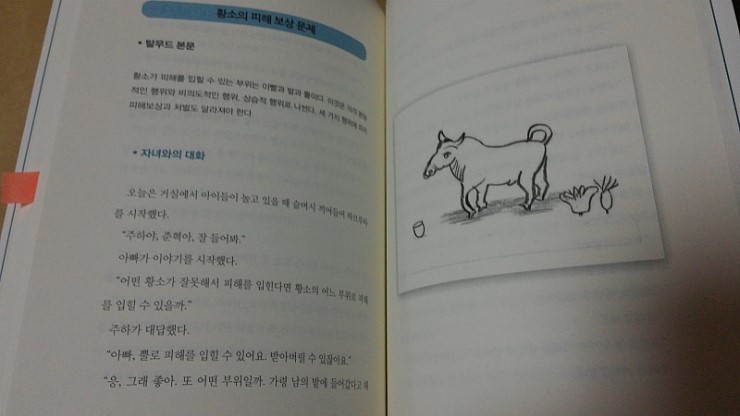 황소의 피해 보상 문제
• 탈무드 본문
황소가 피해를 입힐 수 있는 부위는 이빨과 발과 뿔이다. 이것은 의도
적인 행위와 비의도적인 행위, 상습적 행위로 나뉜다. 세 가지 행위에 따라
피해보상과 처벌도 달라져야 한다.
• 자녀와의 대화
오늘은 거실에서 아이들이 놀고 있을 때 슬며시 끼어들어 하브루타
를 시작했다.
“주하야, 준혁아, 잘 들어봐.”
아빠가 이야기를 시작했다.
“어떤 황소가 잘못해서 피해를 입힌다면 황소의 어느 부위로 피해
를 입힐 수 있을까.”
주하가 대답했다.
“아빠, 뿔로 피해를 입힐 수 있어요. 받아버릴 수 있잖아요.”
“응, 그래 좋아. 또 어떤 부위일까. 가령 남의 밭에 들어갔다고 해